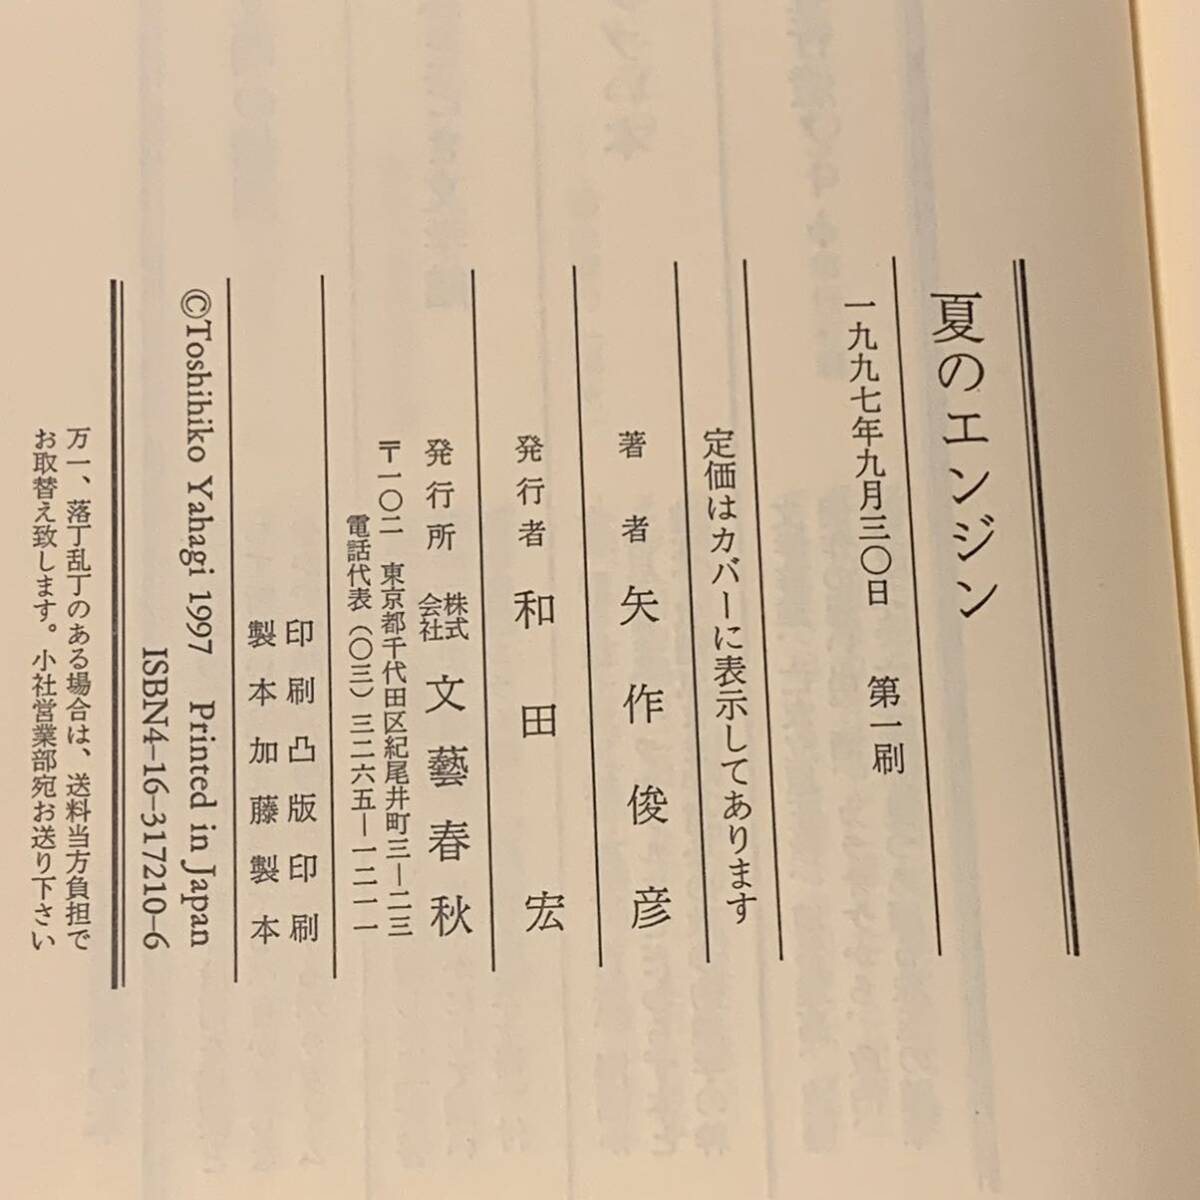 夏のエンジン
一九九七年九月三〇日 第一刷
定価はカバーに表示してあります
著者 矢作俊彦
発行者 和田宏
発行所 株式会社 文藝春秋
〒一〇二 東京都千代田区紀尾井町三—二三
電話代表(〇三)三二六五—一二一一
印刷 凸版印刷
製本 加藤製本
©Toshihiko Yahagi 1997 Printed in Japan
ISBN4-16-317210-6
万一、落丁乱丁のある場合は、送料当方負担で
お取替え致します。小社営業部宛お送り下さい